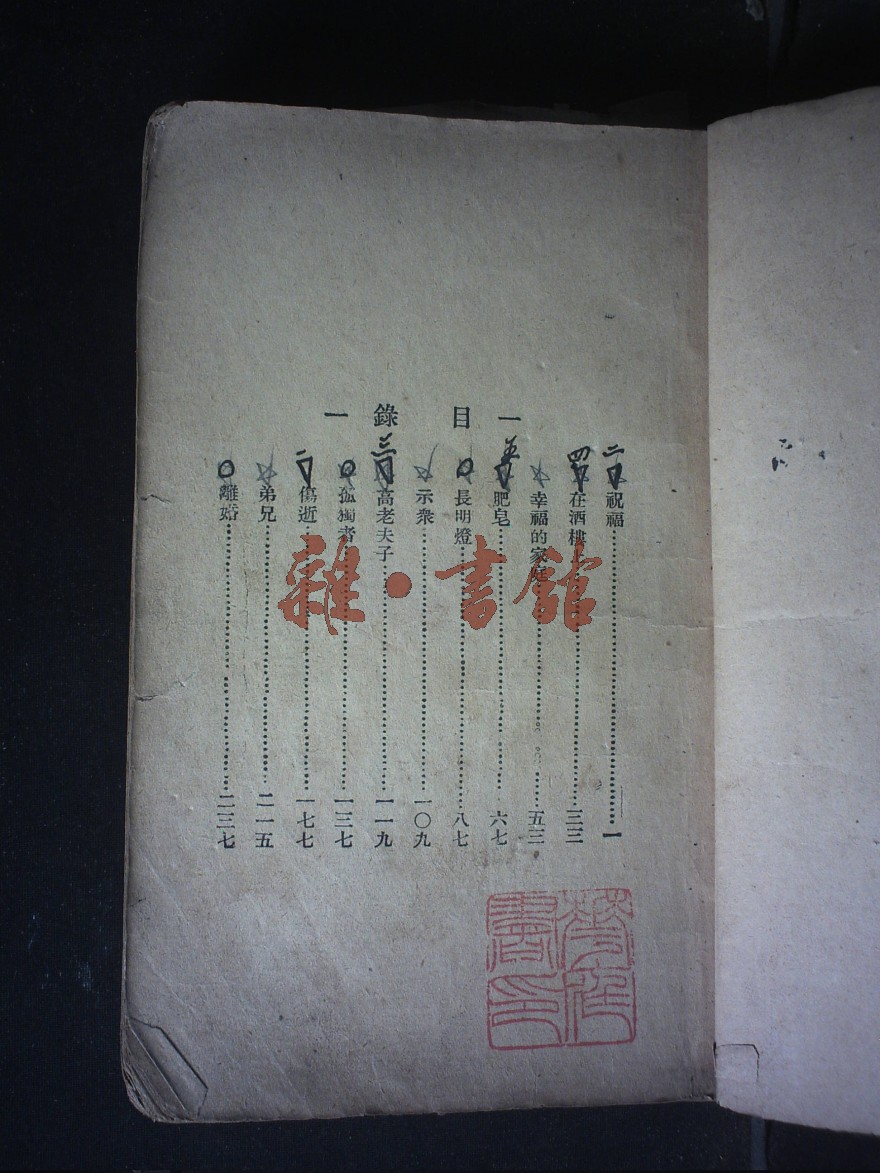 一目錄一
祝福…………一
在酒樓上…………三三
幸福的家庭…………五三
肥皂…………六七
長明燈…………八七
示衆…………一〇九
高老夫子…………一一九
孤獨者…………一三七
傷逝…………一七七
弟兄…………二一五
離婚…………二三七
二
四
五
三
一
雜·書館